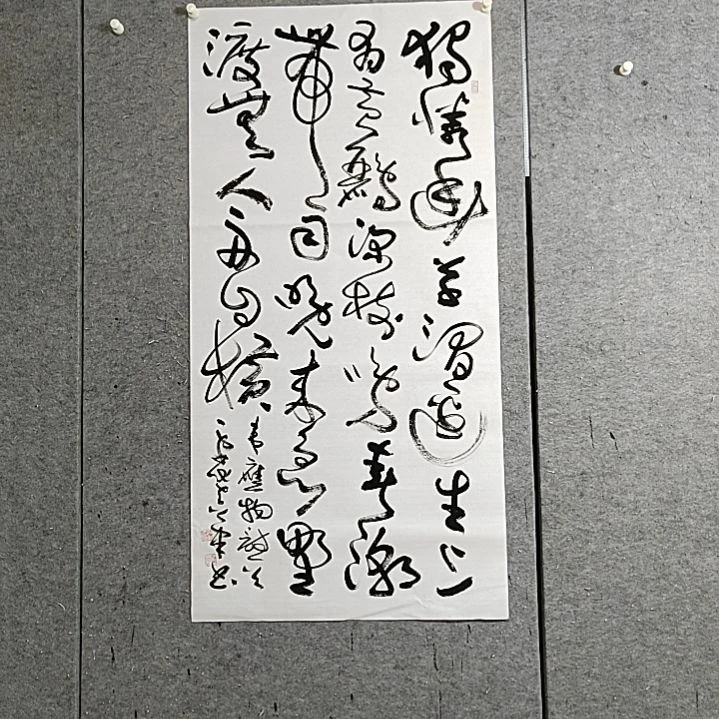 獨憐幽草澗邊生上
有黃鸝深樹鳴春潮
帶雨晚來急野
渡無人舟自橫
韋應物詩
書